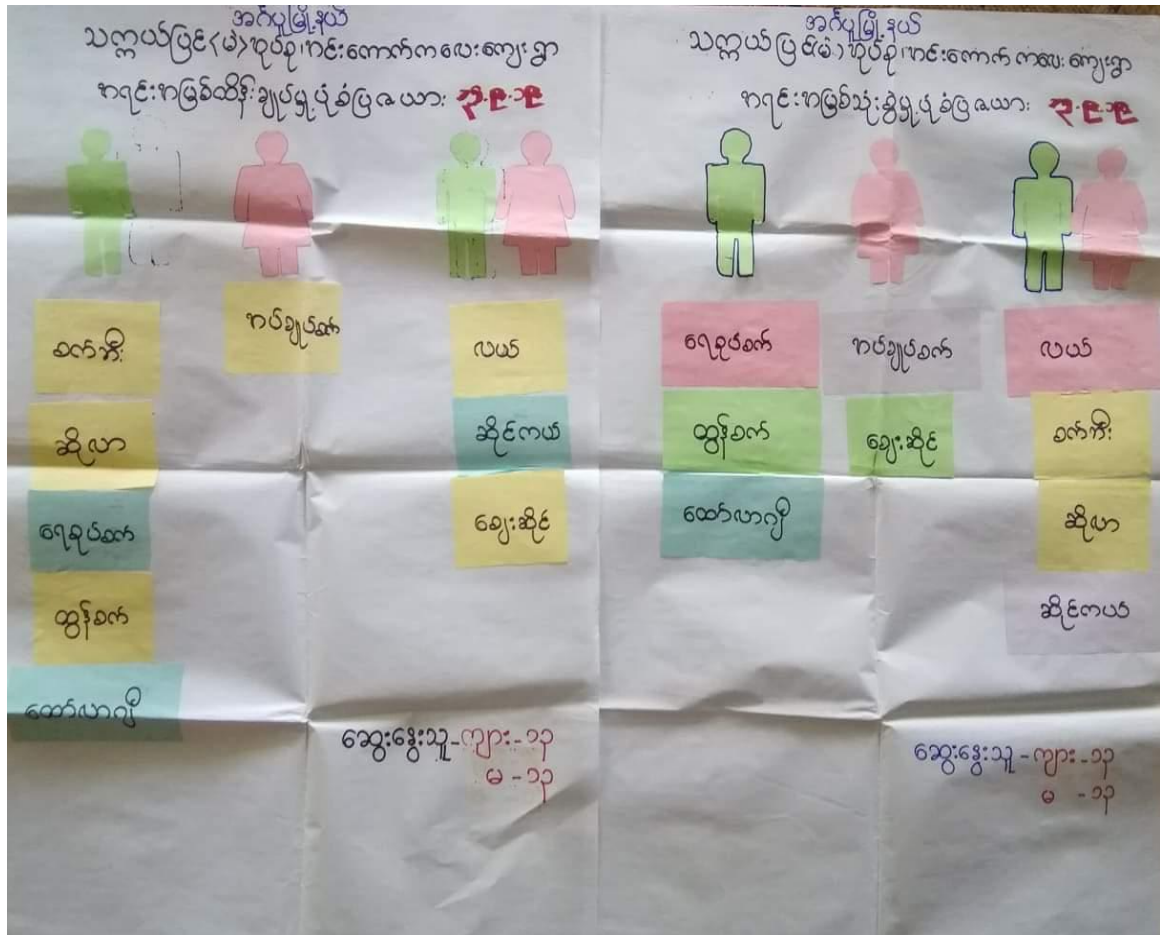 အင်္ဂပူမြို့နယ်
သက္ကယ်ပြင်(မ)အုပ်စု၊ကင်းကောက်ကလေးကျေးရွာ
အရင်းအမြစ်ထိန်းချုပ်မှု ပုံစံပြဇယား ၃.၉.၁၉
စက်ဘီး
ဆိုလာ
ရေစုပ်စက်
ထွန်စက်
ထော်လာဂျီ
အပ်ချုပ်စက်
လယ်
ဆိုင်ကယ်
ဈေးဆိုင်
ဆွေးနွေးသူ-ကျား-၁၃
မ -၁၃
အင်္ဂပူမြို့နယ်
သက္ကယ်ပြင်(မ)အုပ်စု၊ကင်းကောက်ကလေးကျေးရွာ
အရင်းအမြစ်သုံးစွဲမှု ပုံစံပြဇယား ၃.၉.၁၉
ရေစုပ်စက်
ထွန်စက်
ထော်လာဂျီ
အပ်ချုပ်စက်
ဈေးဆိုင်
လယ်
စက်ဘီး
ဆိုလာ
ဆိုင်ကယ်
ဆွေးနွေးသူ-ကျား-၁၃
မ -၁၃